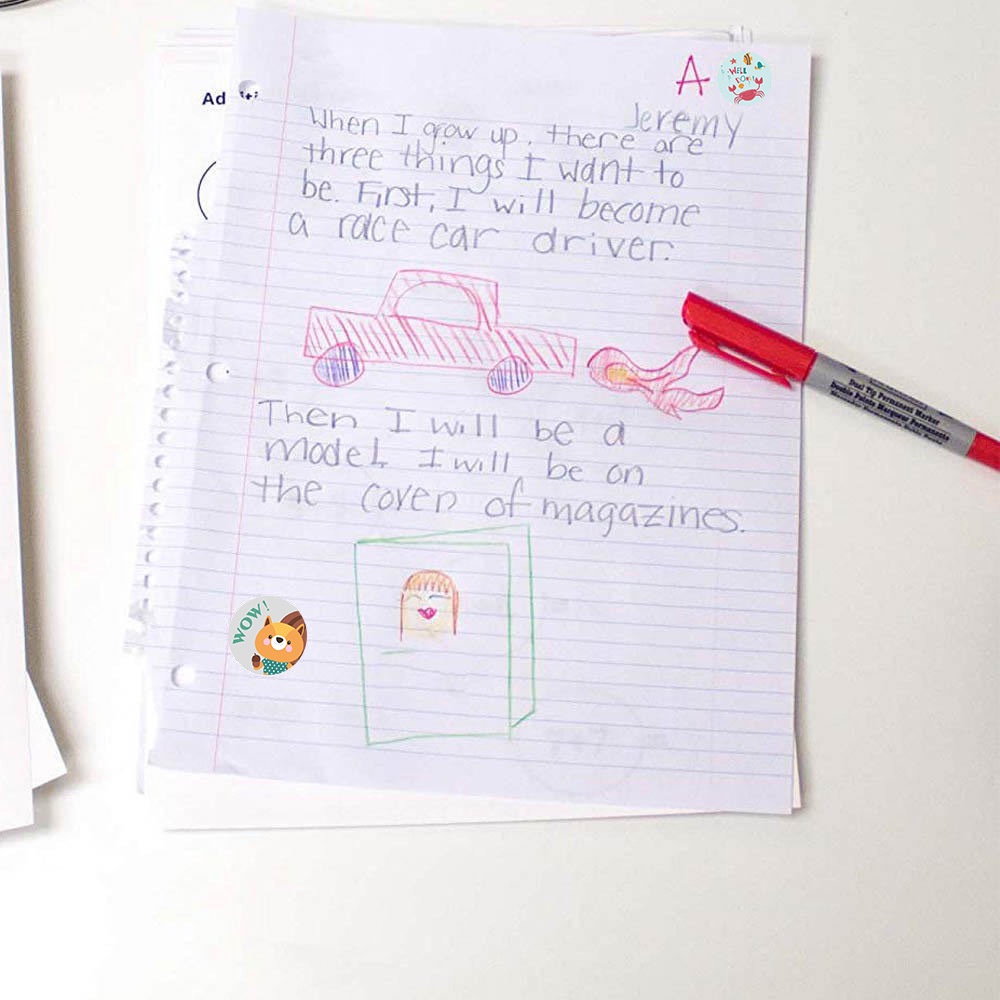 A
WELL DONE!
Jeremy
Ad
When I grow up, there are
three things I want to
be. First, I will become
a race car driver.
Then I will be a
model. I will be on
the cover of magazines.
WOW!
Dual Tip Permanent Marker